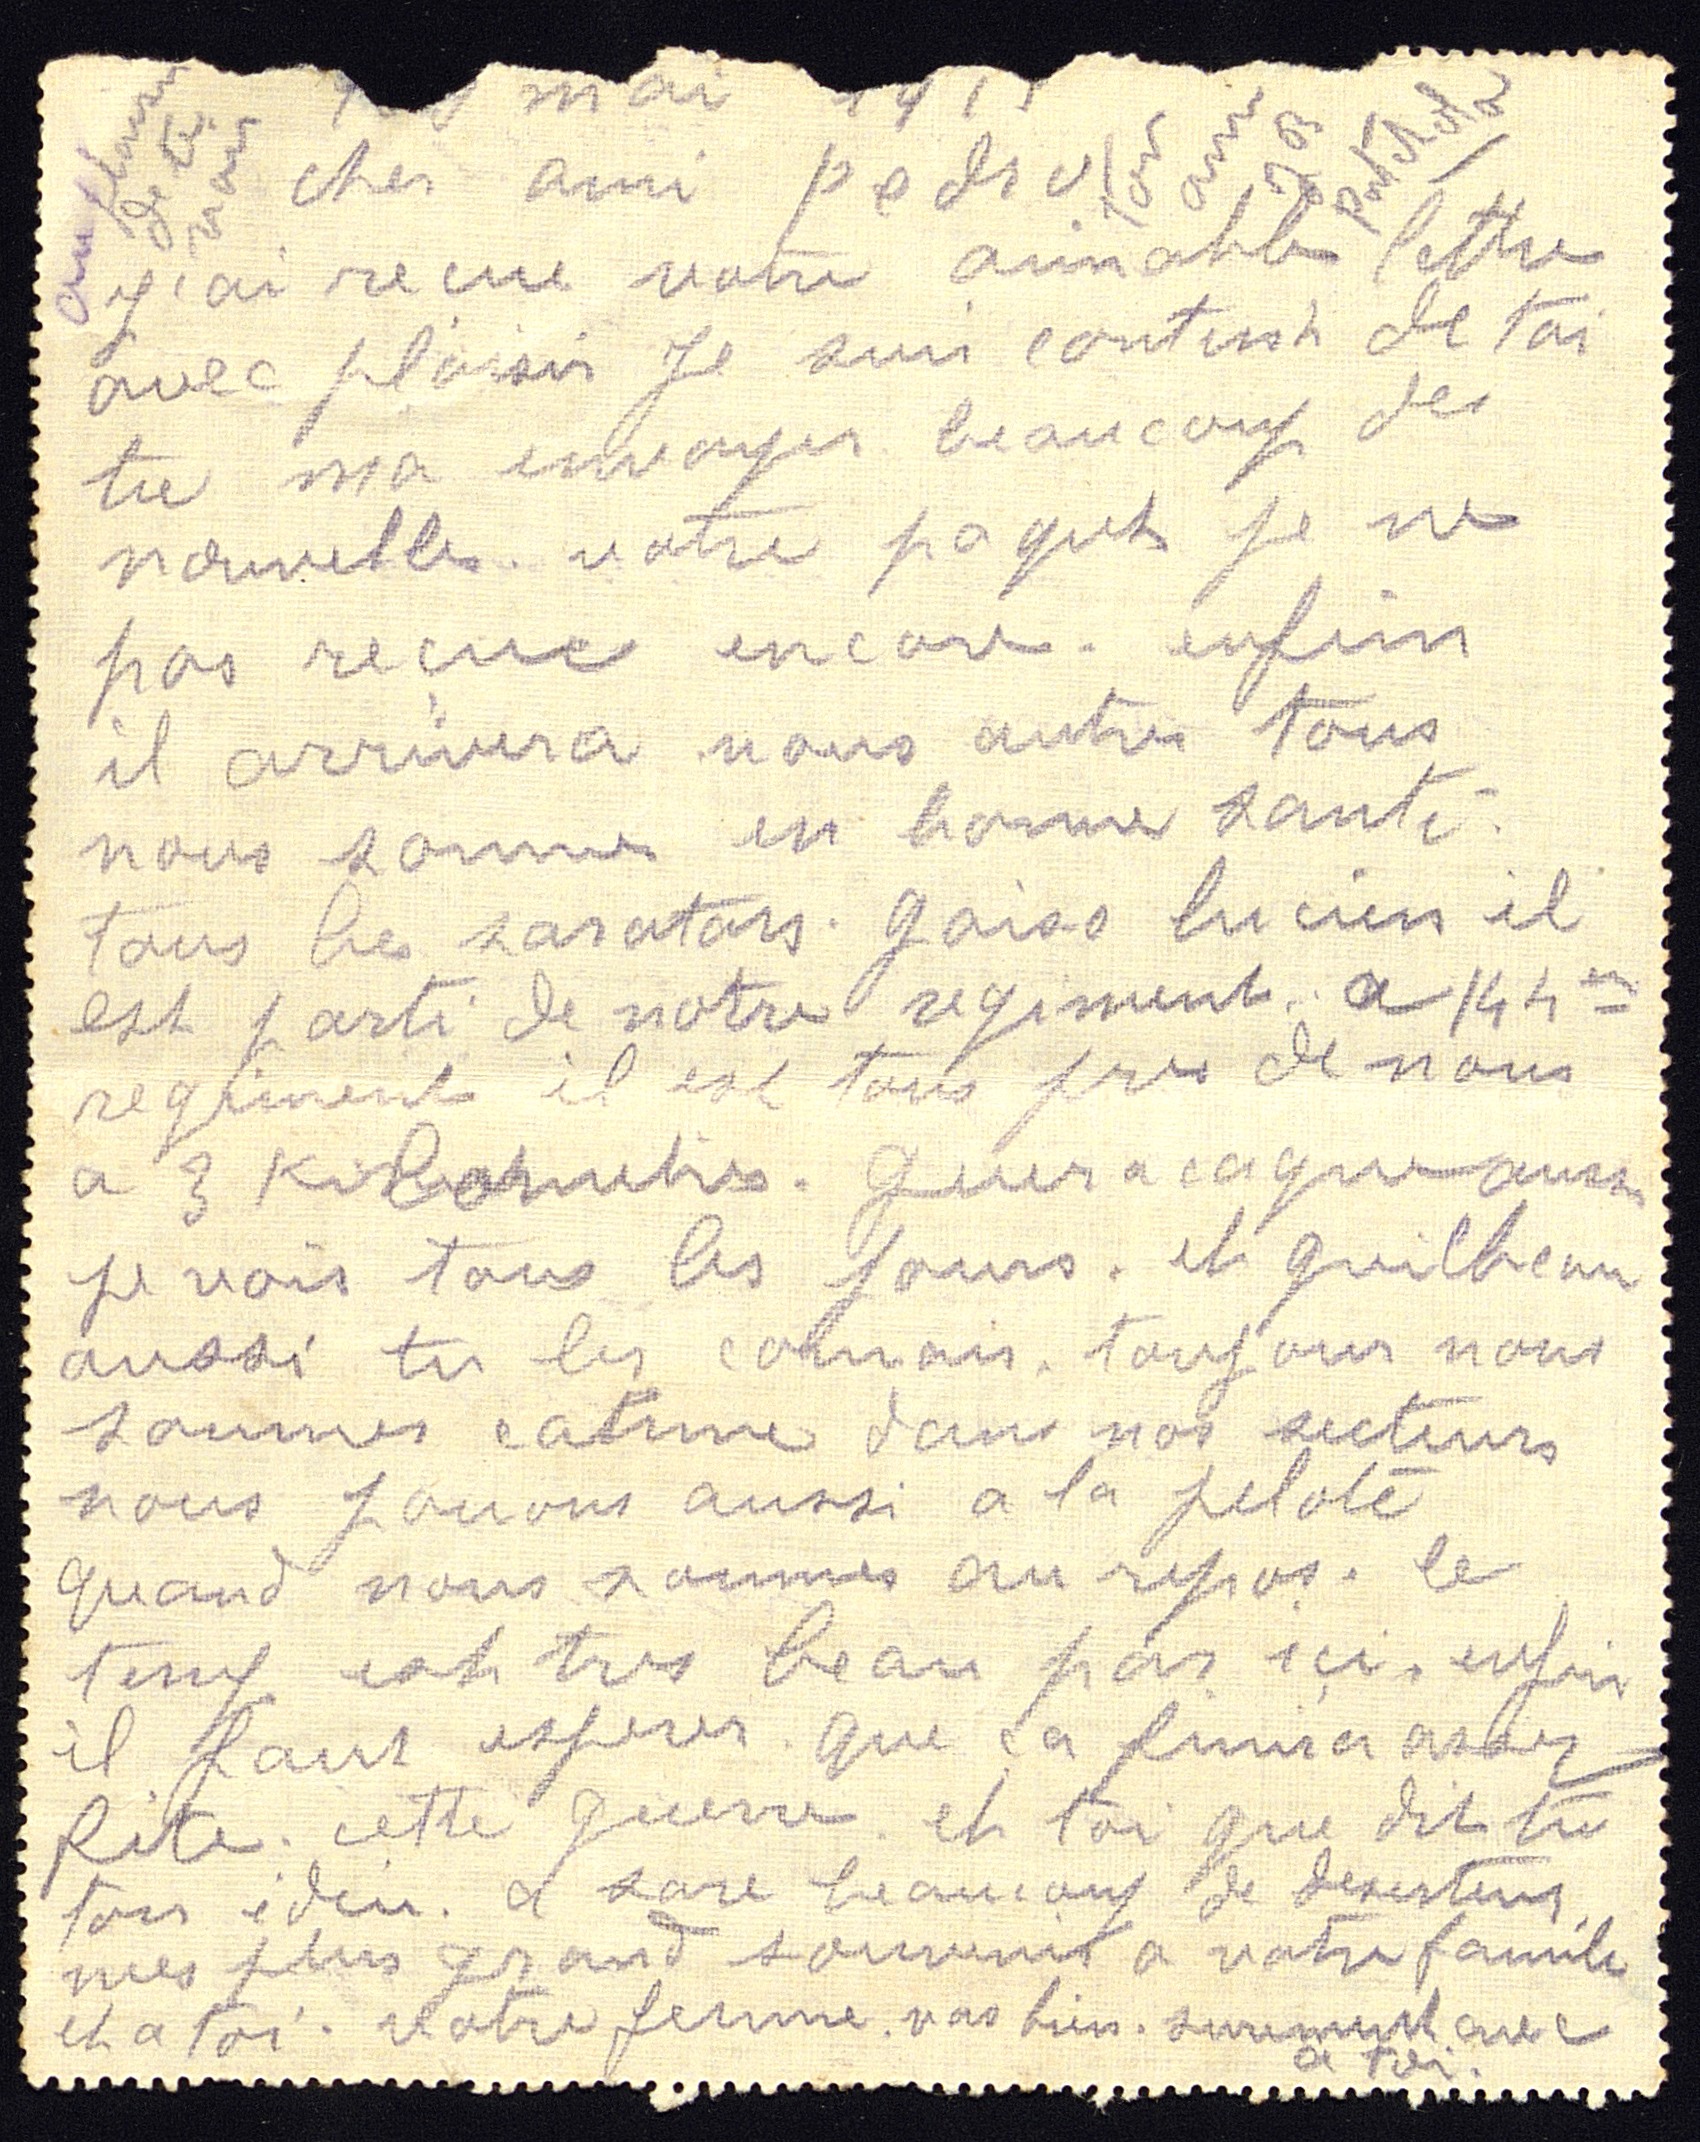 mai 191
cher ami pedro
j'ai reçue votre aimable lettre
avec plaisir je suis contenh de toi
tu ma envoyer beaucoup des
nouvelles. votre paqueh je ne
pas reçue encore. enfin
il arrivera nous autres tous
nous sommes en bonne santé.
tous les saratars. gaiss lucien il
esh parti de notre regiment. a 144em
regimenh il esh tous pres de nous
a 3 Kilometres. aussi
je vois tous les jours. eh guilbeau
aussi tu les connais. toujours nous
sommes calme dans nos secteurs
nous jouons aussi a la pelote
quand nous sommes au repos. le
temp esh tres beau par içi. enfin
il faut esperer que ça finira assez
fite. cette guerre. eh toi que dih tu
ton ideu. a sare beaucoup de deserteurs
mes plus grand souvenir a votre famile
eh a toi. votre femme. vas bien. suremenh avec
a toi.
au plaisir
de te
voir
ton
ami